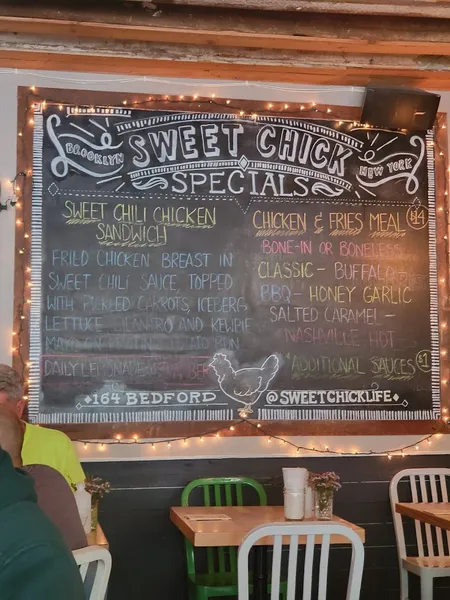 BROOKLYN
SWEET CHICK
NEW YORK
SPECIALS
SWEET CHILI CHICKEN
SANDWICH
FRIED CHICKEN BREAST IN
SWEET CHILI SAUCE, TOPPED
WITH PICKLED CARROTS, ICEBERG
LETTUCE, CILANTRO AND KEWPIE
MAYO
DAILY LEMONADE
CHICKEN & FRIES MEAL $14
BONE-IN OR BONELESS
CLASSIC - BUFFALO -
BBQ - HONEY GARLIC
SALTED CARAMEL -
NASHVILLE HOT
*ADDITIONAL SAUCES $1
164 BEDFORD
@SWEETCHICKLIFE